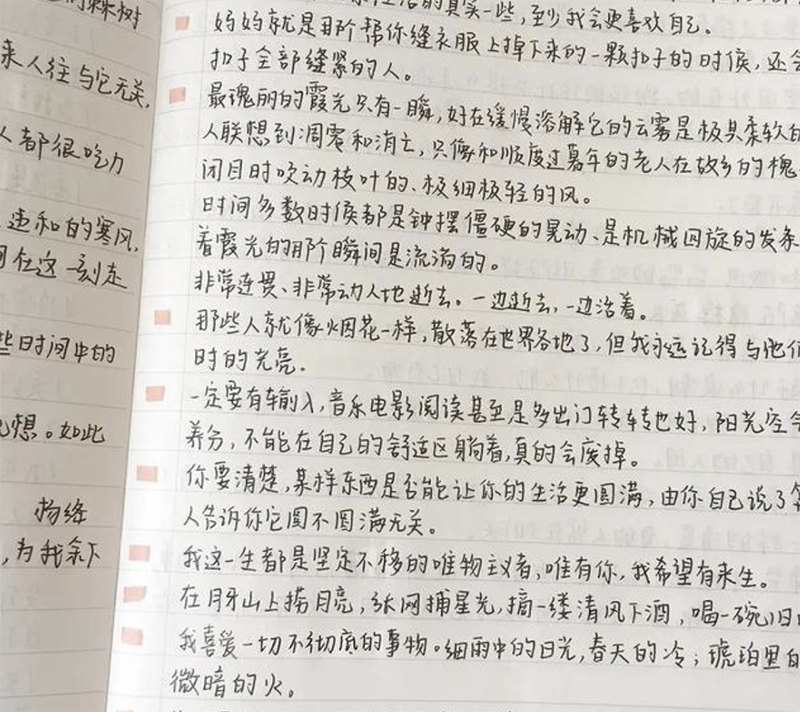 来人往与它无关,
人都很吃力
违和的寒风,
在这一刻走
些时间中的
想。如此
杨绛
,为我余下
活的真实一些,至少我会更喜欢自己。
妈妈就是那个帮你缝衣服上掉下来的一颗扣子的时侯,还会
扣子全部缝紧的人。
最瑰丽的霞光只有一瞬,好在缓慢溶解它的云雾是极其柔软的
人联想到凋零和消亡,只像和顺度过暮年的老人在故乡的槐
闭目时吹动枝叶的、极细极轻的风。
时间多数时侯都是钟摆僵硬的晃动、是机械回旋的发条
着霞光的那个瞬间是流淌的。
非常连贯、非常动人地逝去。一边逝去,一边活着。
那些人就像烟花一样,散落在世界各地了,但我永远记得与他们
时的光亮。
一定要有输入,音乐电影阅读甚至是多出门转转也好,阳光空气
养分,不能在自己的舒适区躺着,真的会废掉。
你要清楚,某样东西是否能让你的生活更圆满,由你自己说了算
人告诉你它圆不圆满无关。
我这一生都是坚定不移的唯物主义者,唯有你,我希望有来生。
在月牙山上捞月亮,张网捕星光,摘一缕清风下酒,喝一碗旧
我喜爱一切不彻底的事物。细雨中的日光,春天的冷;琥珀里的
微暗的火。